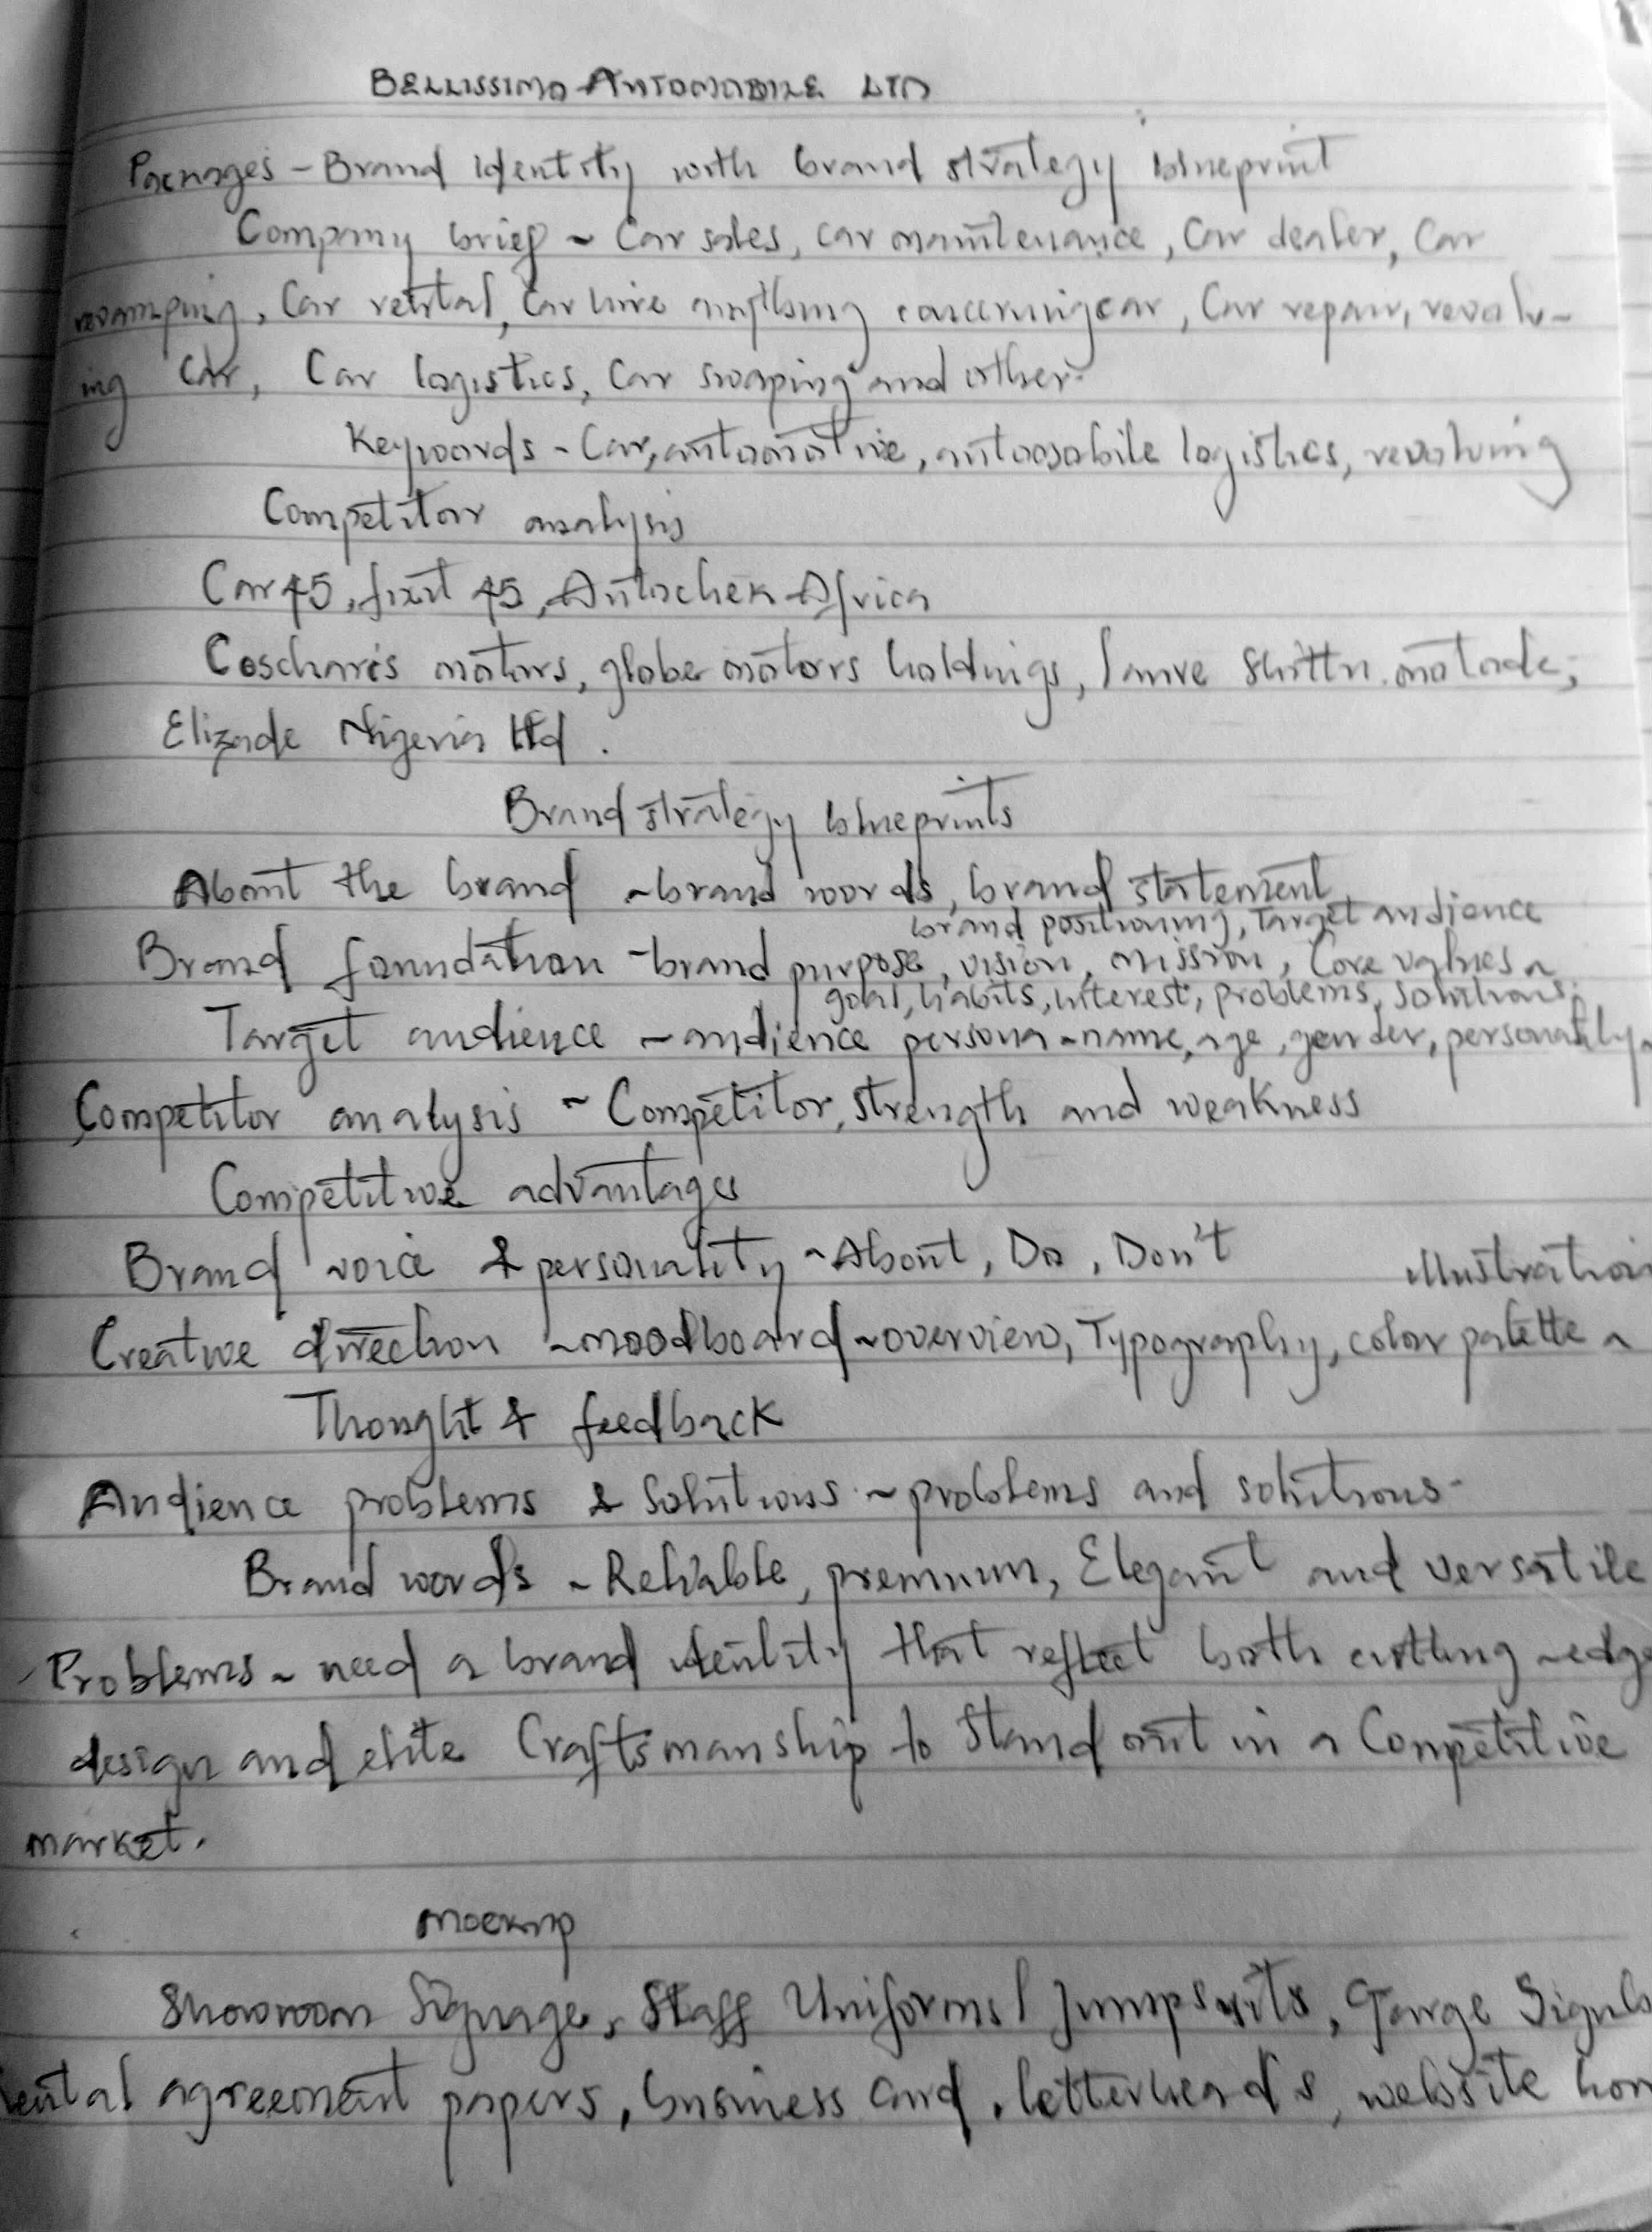 BELLISSIMO AUTOMOBILE LTD
Packages - Brand identity with brand strategy blueprint
Company brief ~ Car sales, car maintenance, Car dealer, Car
revamping, Car rental, Car hire anything concerning car, Car repair, revolv-
ing Car, Car logistics, Car swaping and other.
Keywords - Car, automotive, automobile logistics, revolving
Competitor analysis
Car 45, fixit 45, Autochek Africa
Coscharis motors, globe motors holdings,
Elizade Nigeria Ltd.
Brand strategy blueprints
About the brand ~ brand words, brand statement
brand positioning, Target audience
Brand foundation - brand purpose, vision, mission, Core values ~
goal, habits, interest, problems, solutions.
Target audience ~ audience persona ~ name, age, gender, personality ~
Competitor analysis ~ Competitor, strength and weakness
Competitive advantages
Brand voice & personality ~ About, Do, Don't
illustration
Creative direction ~ moodboard ~ overview, Typography, color palette ~
Thought & feedback
Audience problems & Solutions ~ problems and solutions -
Brand words ~ Reliable, premium, Elegant and versatile
Problems ~ need a brand identity that reflect both cutting ~ edge
design and elite Craftsmanship to Stand out in a Competitive
market.
mockup
Showroom Signage, Staff Uniforms / Jumpsuits,
rental agreement papers, business card, letterheads, website